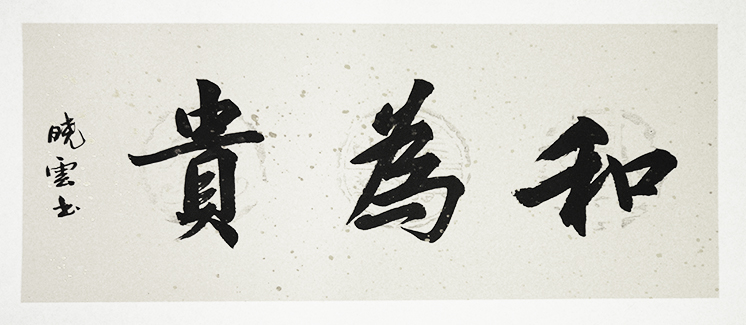 和為貴
曉雲书